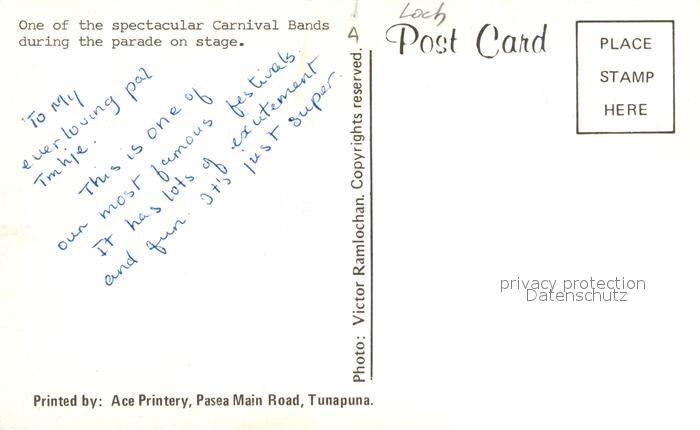 One of the spectacular Carnival Bands
during the parade on stage.
To My
everloving pal
This is one of
our most famous festivals
It has lots of excitement
and fun. It's just super.
Printed by: Ace Printery, Pasea Main Road, Tunapuna.
Photo: Victor Ramlochan. Copyrights reserved.
A
Loch
Post Card
PLACE
STAMP
HERE
privacy protection
Datenschutz